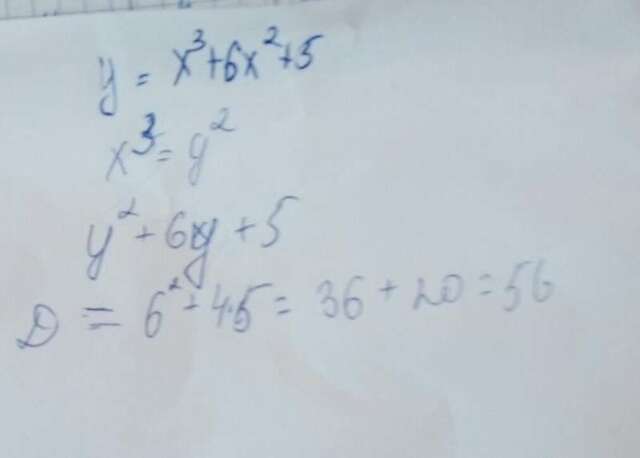 y = x³+6x²+5
x³=y²
y²+6xy+5
D = 6²-4·5= 36+20=56